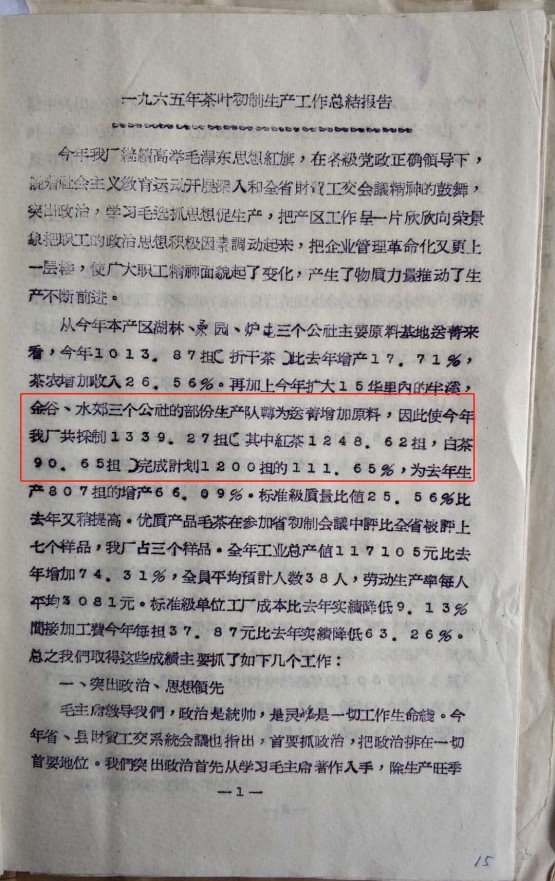 一九六五年茶叶初制生产工作总結报告
今年我厂継續高举毛澤东思想紅旗，在各級党政正确领导下，
随着社会主义教育运动开展深入和全省財貿工交会議精神的鼓舞，
突出政治，学习毛选抓思想促生产，把产区工作呈一片欣欣向荣景
象把职工的政治思想积极因素調动起来，把企业管理革命化又更上
一层楼，使广大职工精神面貌起了变化，产生了物質力量推动了生
产不断前进。
从今年本产区湖林、园、炉三个公社主要原料基地送菁来
看，今年1013．87担〔折干茶〕比去年增产17．71％，
茶农增加收入26．56％。再加上今年扩大15华里內的
金谷、水郊三个公社的部份生产队为送菁增加原料，因此使今年
我厂共採制1339．27担〔其中紅茶1248．62担，白茶
90．65担〕完成計划1200担的111．65％，为去年生
产807担的增产66．09％。标准級質量比值25．56％比
去年又稍提高。优質产品毛茶在参加省初制会議中評比全省被評上
七个样品，我厂占三个样品。全年工业总产值117105元比去
年增加74．31％，全員平均預計人数38人，劳动生产率每人
平均3081元。标准級单位工厂成本比去年实績降低9．13％
間接加工費今年每担37．87元比去年实績降低63．26％。
总之我們取得这些成績主要抓了如下几个工作：
一、突出政治、思想領先
毛主席教导我們，政治是統帅，是灵魂是一切工作生命綫。今
年省、县財貿工交系統会議也指出，首要抓政治，把政治排在一切
首要地位。我們突出政治首先从学习毛主席著作入手，除生产旺季
—1—
15